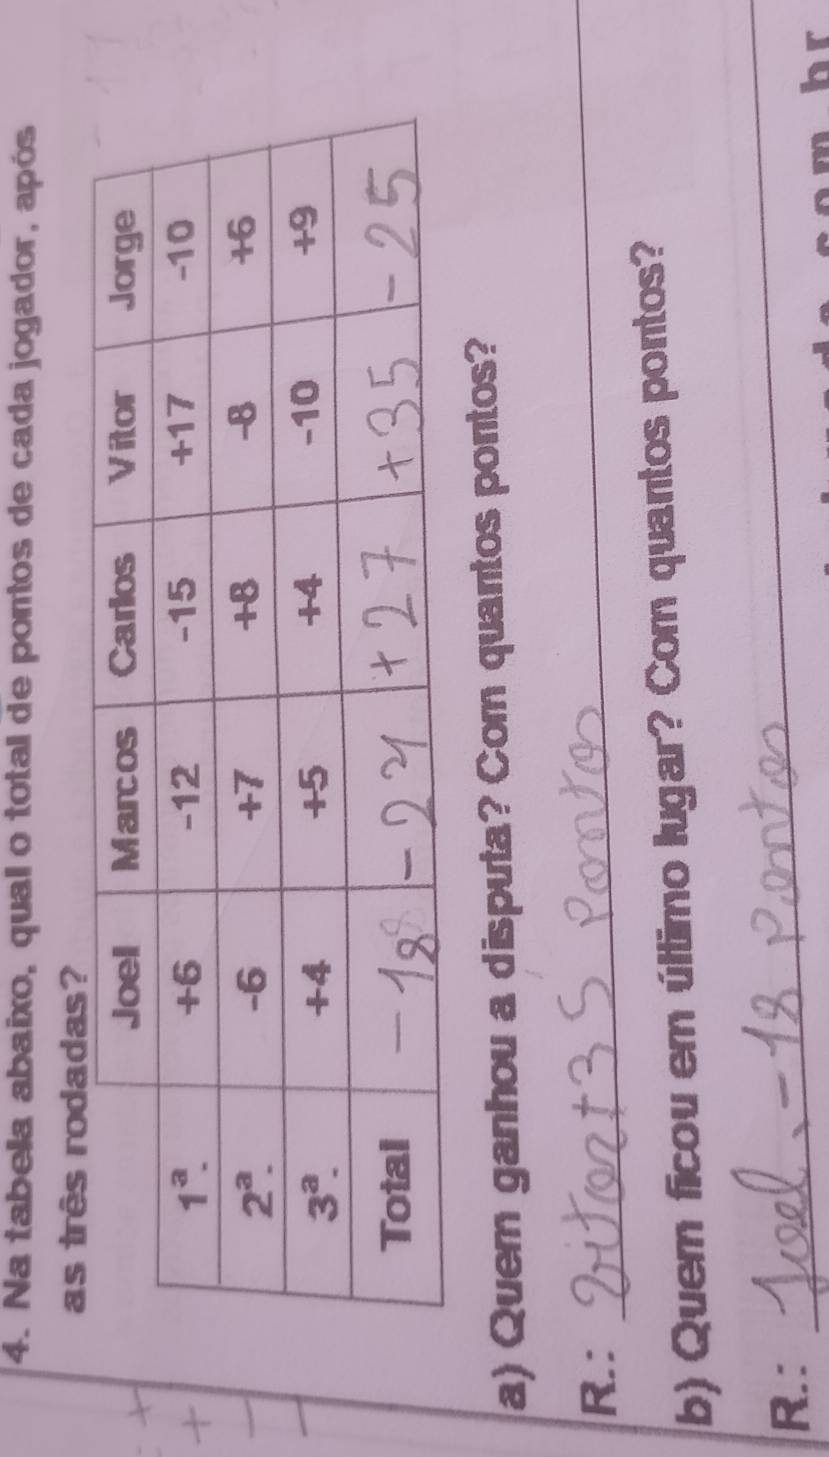 4. Na tabela abaixo, qual o total de pontos de cada jogador, após
as três rodadas?
Joel Marcos Carlos Vitor Jorge
1ª. +6 -12 -15 +17 -10
2ª. -6 +7 +8 -8 +6
3ª. +4 +5 +4 -10 +9
Total -18 -24 +27 +35 -25
a) Quem ganhou a disputa? Com quantos pontos?
R.: Vitor +35 Pontos
b) Quem ficou em último lugar? Com quantos pontos?
R.: Joel. -18 Pontos